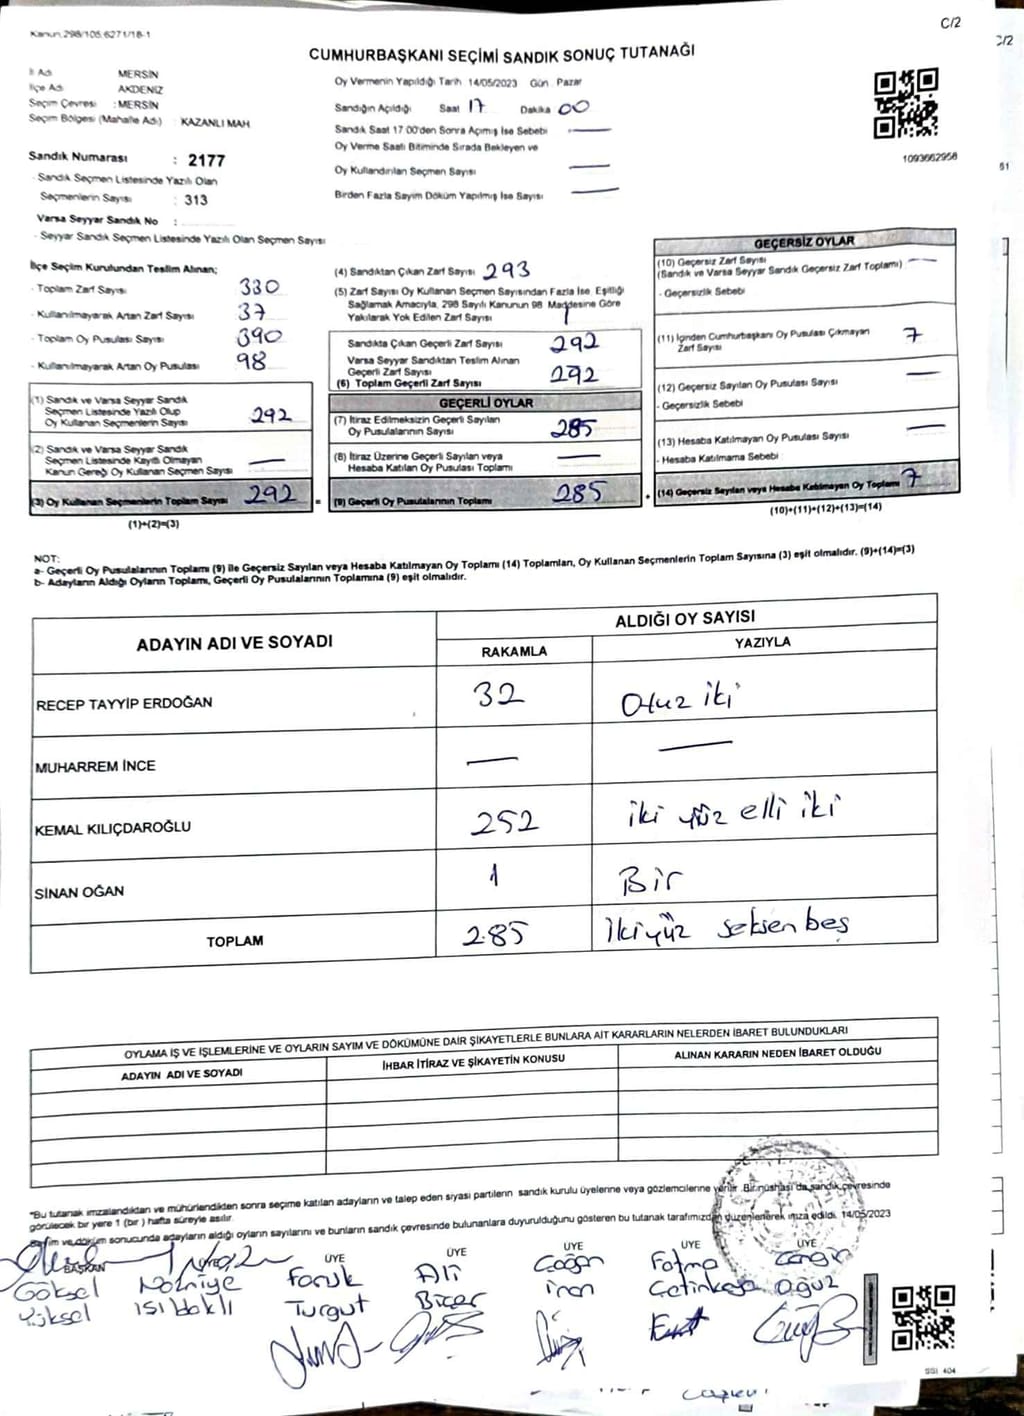 Kanun.298/105.6271/18-1
C/2
CUMHURBAŞKANI SEÇİMİ SANDIK SONUÇ TUTANAĞI
İl Adı MERSİN
İlçe Adı AKDENİZ
Seçim Çevresi : MERSİN
Seçim Bölgesi (Mahalle Adı) : KAZANLI MAH
Sandık Numarası : 2177
- Sandık Seçmen Listesinde Yazılı Olan
Seçmenlerin Sayısı : 313
Varsa Seyyar Sandık No :
- Seyyar Sandık Seçmen Listesinde Yazılı Olan Seçmen Sayısı
Oy Vermenin Yapıldığı Tarih 14/05/2023 Gün Pazar
Sandığın Açıldığı Saat 17 Dakika 00
Sandık Saat 17 00'den Sonra Açılmış İse Sebebi —
Oy Verme Saati Bitiminde Sırada Bekleyen ve
Oy Kullandırılan Seçmen Sayısı —
Birden Fazla Sayım Döküm Yapılmış İse Sayısı —
1093662958
İlçe Seçim Kurulundan Teslim Alınan;
- Toplam Zarf Sayısı 330
- Kullanılmayarak Artan Zarf Sayısı 37
- Toplam Oy Pusulası Sayısı 390
- Kullanılmayarak Artan Oy Pusulası 98
(1) Sandık ve Varsa Seyyar Sandık
Seçmen Listesinde Yazılı Olup
Oy Kullanan Seçmenlerin Sayısı 292
(2) Sandık ve Varsa Seyyar Sandık
Seçmen Listesinde Kayıtlı Olmayan
Kanun Gereği Oy Kullanan Seçmen Sayısı —
(3) Oy Kullanan Seçmenlerin Toplam Sayısı 292 =
(1)+(2)=(3)
(4) Sandıktan Çıkan Zarf Sayısı 293
(5) Zarf Sayısı Oy Kullanan Seçmen Sayısından Fazla İse, Eşitliği
Sağlamak Amacıyla, 298 Sayılı Kanunun 98. Maddesine Göre
Yakılarak Yok Edilen Zarf Sayısı 1
Sandıkta Çıkan Geçerli Zarf Sayısı 292
Varsa Seyyar Sandıktan Teslim Alınan
Geçerli Zarf Sayısı
(6) Toplam Geçerli Zarf Sayısı 292
GEÇERLİ OYLAR
(7) İtiraz Edilmeksizin Geçerli Sayılan
Oy Pusulalarının Sayısı 285
(8) İtiraz Üzerine Geçerli Sayılan veya
Hesaba Katılan Oy Pusulası Toplamı —
(9) Geçerli Oy Pusulalarının Toplamı 285 +
GEÇERSİZ OYLAR
(10) Geçersiz Zarf Sayısı —
(Sandık ve Varsa Seyyar Sandık Geçersiz Zarf Toplamı)
- Geçersizlik Sebebi
(11) İçinden Cumhurbaşkanı Oy Pusulası Çıkmayan
Zarf Sayısı 7
(12) Geçersiz Sayılan Oy Pusulası Sayısı —
- Geçersizlik Sebebi
(13) Hesaba Katılmayan Oy Pusulası Sayısı —
- Hesaba Katılmama Sebebi
(14) Geçersiz Sayılan veya Hesaba Katılmayan Oy Toplamı 7
(10)+(11)+(12)+(13)=(14)
NOT:
a- Geçerli Oy Pusulalarının Toplamı (9) ile Geçersiz Sayılan veya Hesaba Katılmayan Oy Toplamı (14) Toplamları, Oy Kullanan Seçmenlerin Toplam Sayısına (3) eşit olmalıdır. (9)+(14)=(3)
b- Adayların Aldığı Oyların Toplamı, Geçerli Oy Pusulalarının Toplamına (9) eşit olmalıdır.
ADAYIN ADI VE SOYADI ALDIĞI OY SAYISI
RAKAMLA YAZIYLA
RECEP TAYYİP ERDOĞAN 32 Otuz iki
MUHARREM İNCE — —
KEMAL KILIÇDAROĞLU 252 iki yüz elli iki
SİNAN OĞAN 1 Bir
TOPLAM 285 İkiyüz seksen beş
OYLAMA İŞ VE İŞLEMLERİNE VE OYLARIN SAYIM VE DÖKÜMÜNE DAİR ŞİKAYETLERLE BUNLARA AİT KARARLARIN NELERDEN İBARET BULUNDUKLARI
ADAYIN ADI VE SOYADI İHBAR İTİRAZ VE ŞİKAYETİN KONUSU ALINAN KARARIN NEDEN İBARET OLDUĞU
*Bu tutanak imzalandıktan ve mühürlendikten sonra seçime katılan adayların ve talep eden siyasi partilerin sandık kurulu üyelerine veya gözlemcilerine verilir. Bir nüshası da sandık çevresinde
görülecek bir yere 1 (bir ) hafta süreyle asılır.
Sayım ve döküm sonucunda adayların aldığı oyların sayılarını ve bunların sandık çevresinde bulunanlara duyurulduğunu gösteren bu tutanak tarafımızdan düzenlenerek imza edildi. 14/05/2023
BAŞKAN ÜYE ÜYE ÜYE ÜYE ÜYE
Göksel Faruk Ali Çağan Fatma Cengiz
Yüksel Turgut Biçer inan Çetinkaya Oğuz
SSI 404